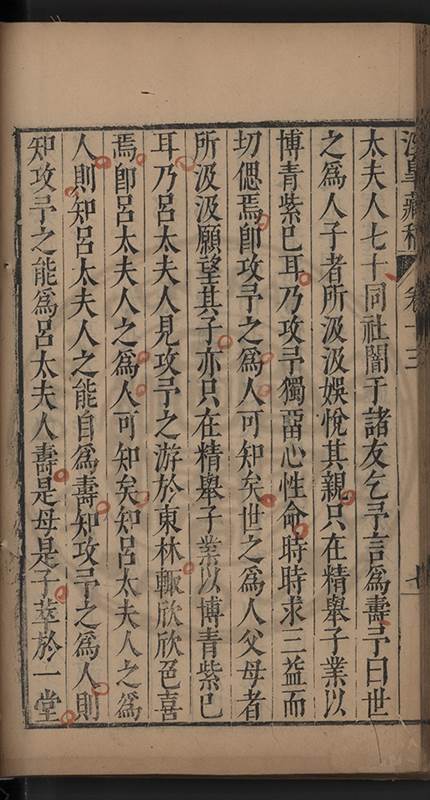 涇皋藏稿 卷十三 七
太夫人七十同社闇于諸友乞予言爲壽予曰世
之爲人子者所汲汲娛悅其親只在精舉子業以
博青紫已耳乃攻予獨畱心性命時時求三益而
切偲焉卽攻予之爲人可知矣世之爲人父母者
所汲汲願望其子亦只在精舉子業以博青紫已
耳乃呂太夫人見攻予之游於東林輙欣欣色喜
焉卽呂太夫人之爲人可知矣知呂太夫人之爲
人則知呂太夫人之能自爲壽知攻予之爲人則
知攻予之能爲呂太夫人壽是母是子萃於一堂